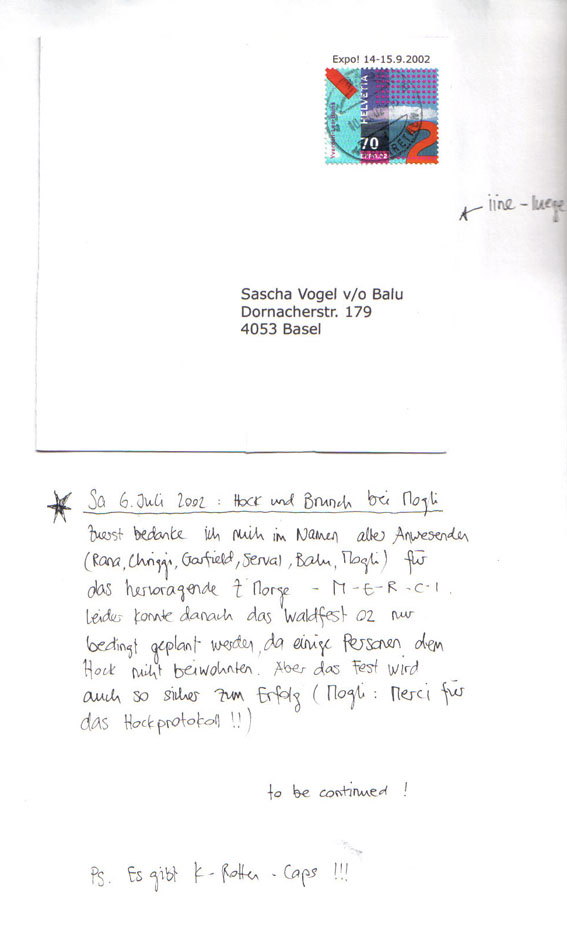 Expo! 14-15.9.2002
HELVETIA
70
2
iine - luege
Sascha Vogel v/o Balu
Dornacherstr. 179
4053 Basel
Sa 6. Juli 2002 : Hock und Brunch bei Mogli
Zuerst bedanke ich mich im Namen aller Anwesenden
(Rana, Chriggi, Garfield, Serval, Balu, Mogli) für
das hervoragende Z'Morge - M-E-R-C-I.
Leider konnte danach das Waldfest 02 nur
bedingt geplant werden, da einige Personen dem
Hock nicht beiwohnten. Aber das Fest wird
auch so sicher zum Erfolg (Mogli : Merci für
das Hockprotokoll !!)
to be continued !
Ps. Es gibt K-Rotten-Caps !!!